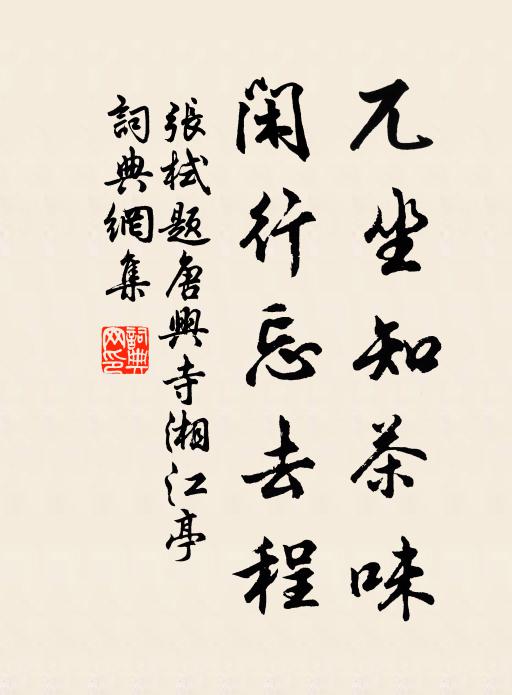 兀坐知茶味
閑行忘去程
張栻題唐興寺湘江亭
詞典網集
詞典
网印